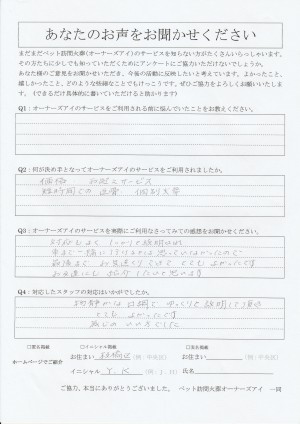 あなたのお声をお聞かせください
まだまだペット訪問火葬(オーナーズアイ)のサービスを知らない方がたくさんいらっしゃいます。
その方たちに少しでも知っていただくためにアンケートにご協力いただけないでしょうか。
あなた様のご意見をお聞かせいただき、今後の活動に反映したいと考えています。よかったこと、
嬉しかったこと、どのような些細なことでもけっこうです。ぜひご協力をよろしくお願いいたしま
す。(できるだけ具体的に書いていただけると助かります)
Q1:オーナーズアイのサービスをご利用される前に悩んでいたことをお教えください。
Q2:何が決め手となってオーナーズアイのサービスをご利用されましたか。
価格 サービス
個別火葬
Q3:オーナーズアイのサービスを実際にご利用なさってみての感想をお聞かせください。
対応もよく しっかり説明
とても よかったです
Q4:対応したスタッフの対応はいかがでしたか。
物静かな口調で ゆっくり説明して頂き
とても よかったです
感じの いい方でした
□実名掲載 □イニシャル掲載 □匿名掲載
ホームページでご紹介
お住まい 板橋区 (例:中央区) お住まい (例:中央区)
イニシャル Y.K (例:J・H) 氏名
ご協力、本当にありがとうございました。 ペット訪問火葬オーナーズアイ 一同